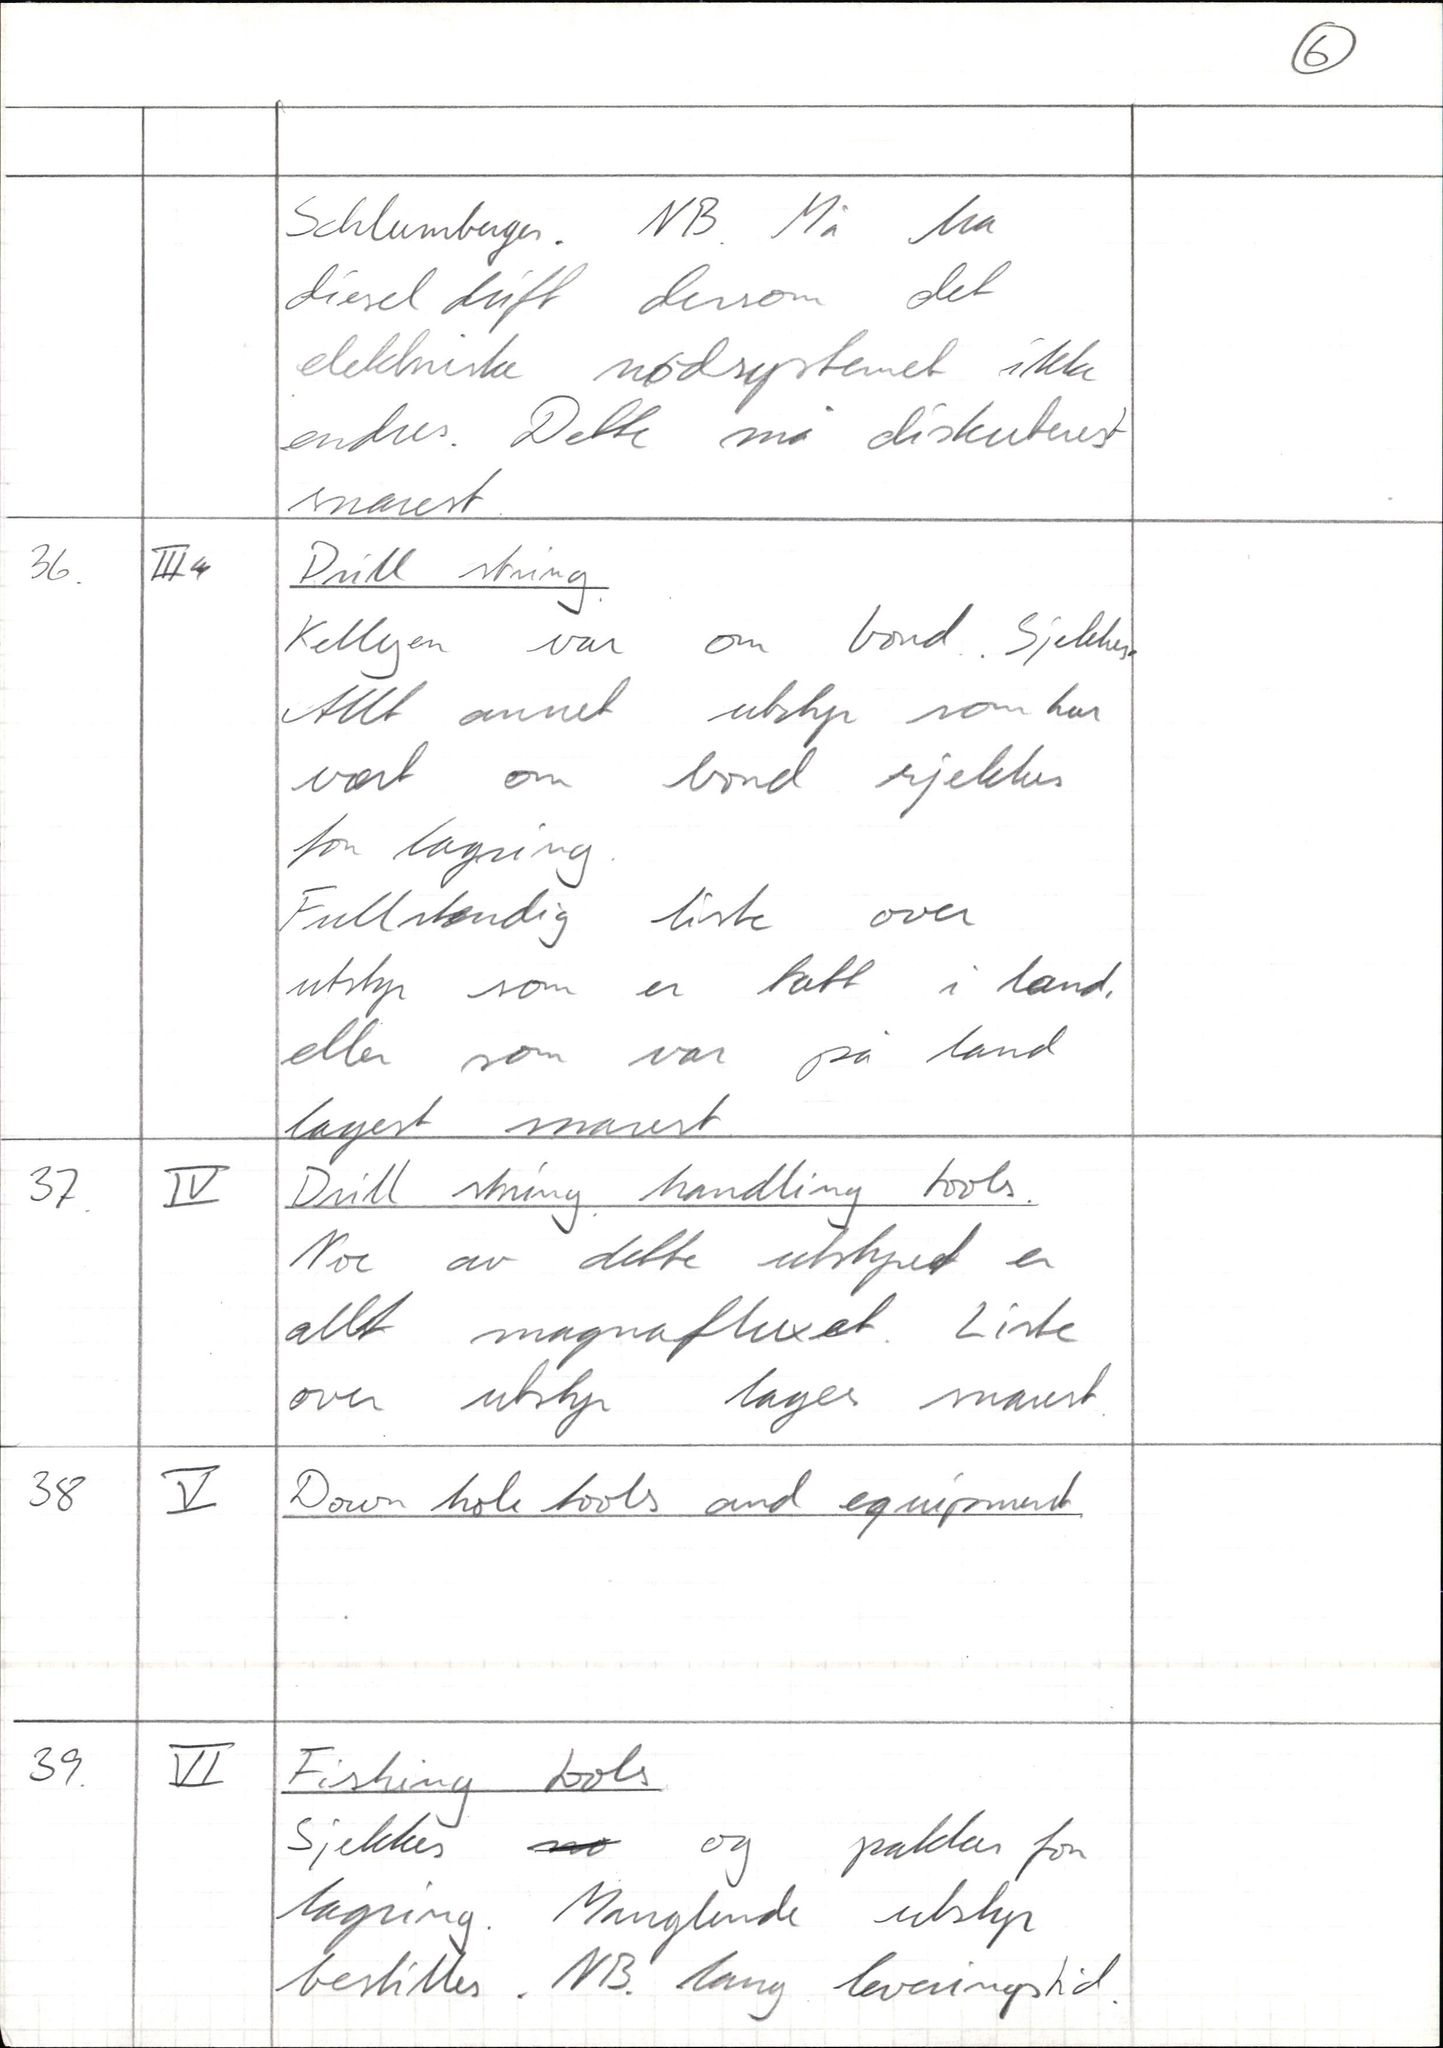 6
Schlumberger. NB. Må ha
diesel drift dersom det
elektriske nødsystemet ikke
endres. Dette må diskuteres
snarest.
36. IIIa Drill string.
Kellyen var om bord. Sjekkes.
Allt annet utstyr som har
vært om bord sjekkes
for lagring.
Fullstendig liste over
utstyr som er tatt i land.
eller som var på land
lagest snarest
37. IV Drill string handling tools.
Noe av dette utstyret er
allt magnafluxet. Liste
over utstyr lages snarest.
38 V Down hole tools and equipment
39. VI Fishing tools
Sjekkes og pakkes for
lagring. Manglende utstyr
bestilles. NB. lang leveringstid.